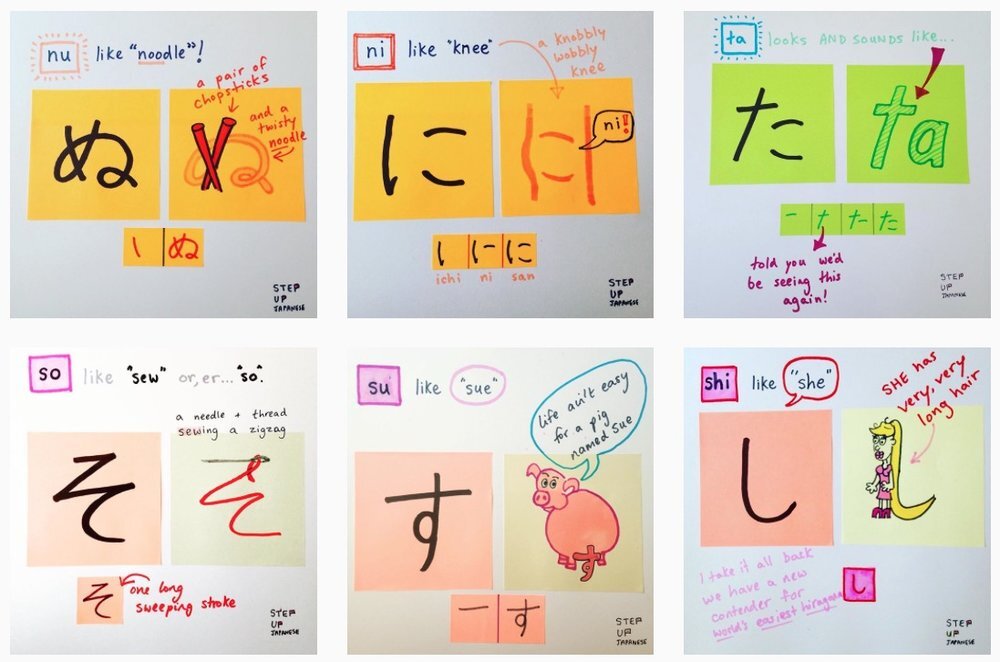 nu like "noodle"!
a pair of
chopsticks
and a
twisty
noodle
ぬ
い ぬ
STEP
UP
JAPANESE
ni like "knee"
a knobbly
wobbly
knee
に に
ni!
ichi ni san
STEP
UP
JAPANESE
ta looks AND sounds like...
た ta
た
told you we'd
be seeing this
again!
STEP
UP
JAPANESE
so like "sew" or, er... "so".
a needle + thread
sewing a zigzag
そ そ
そ
one long
sweeping stroke
STEP
UP
JAPANESE
su like "sue"
life ain't easy
for a pig
named Sue
す す
一 す
STEP
UP
JAPANESE
shi like "she"
SHE has
very, very
long hair
し
I take it all back
we have a new
contender for
world's easiest hiragana
し
STEP
UP
JAPANESE